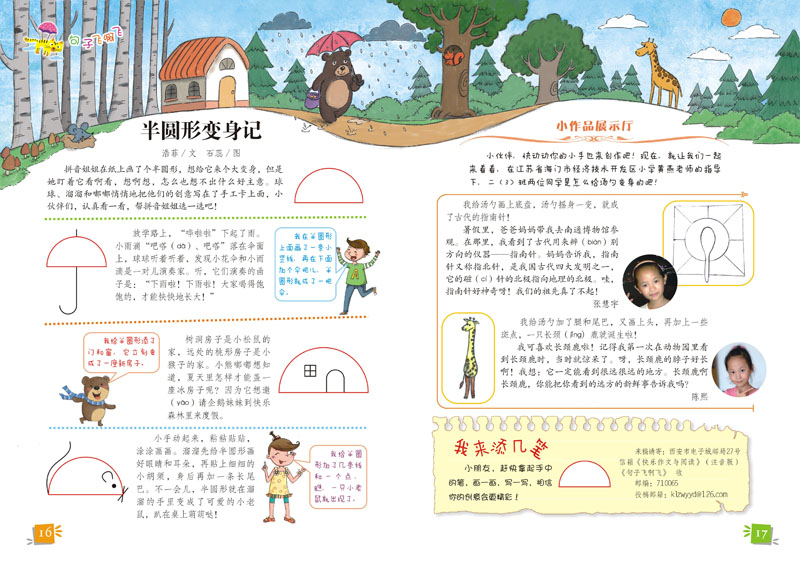 句子飞啊飞
半圆形变身记
浩菲/文 石蕊/图
拼音姐姐在纸上画了个半圆形，想给它来个大变身，但是
她盯着它看啊看，想啊想，怎么也想不出什么好主意。球
球、溜溜和嘟嘟悄悄地把他们的创意写在了手工卡上面，小
伙伴们，认真看一看，帮拼音姐姐选一选吧！
放学路上，“哗啦啦”下起了雨。
小雨滴“吧嗒（dā）、吧嗒”落在伞面
上，球球听着听着，发现小花伞和小雨
滴是一对儿演奏家。听，它们演奏的曲
子是：“下雨啦！下雨啦！大家喝得饱
饱的，才能快快地长大！”
我在半圆形
上面画了一条小
竖线，再在下面
加个伞把儿，半
圆形就成了一把
伞。
我给半圆形添了
门和窗，它立刻变
成了一座新房子。
树洞房子是小松鼠的
家，远处的桃形房子是小
猴子的家。小熊嘟嘟想知
道，夏天里怎样才能盖一
座冰房子呢？因为它想邀
（yāo）请企鹅妹妹到快乐
森林里来度假。
小手动起来，粘粘贴贴，
涂涂画画。溜溜先给半圆形画
好眼睛和耳朵，再贴上细细的
小胡须，身后再加一条长尾
巴。不一会儿，半圆形就在溜溜
的手里变成了可爱的小老
鼠，趴在桌上萌萌哒！
我给半圆
形加了几条线
和一个点，
瞧，一只小老
鼠就出现了。
16
小作品展示厅
小伙伴，快动动你的小手也来创作吧！现在，就让我们一起
来看看，在江苏省海门市经济技术开发区小学黄燕老师的指导
下，二（3）班两位同学是怎么给汤勺变身的吧！
我给汤勺画上底盘，汤勺摇身一变，就成
了古代的指南针！
暑假里，爸爸妈妈带我去南通博物馆参
观。在那里，我看到了古代用来辨（biàn）别
方向的仪器——指南针。妈妈告诉我，指南
针又称指北针，是我国古代四大发明之一，
它的磁（cí）针的北极指向地理的北极。哇，
指南针好神奇呀！我们的祖先真了不起！
张慧宇
我给汤勺加了腿和尾巴，又画上头，再加上一些
斑点，一只长颈（jǐng）鹿就诞生啦！
我可喜欢长颈鹿啦！记得我第一次在动物园里看
到长颈鹿时，当时就惊呆了。呀，长颈鹿的脖子好长
啊！我想：它一定能看到很远很远的地方。长颈鹿啊
长颈鹿，你能把你看到的远方的新鲜事告诉我吗？
陈熙
我来添几笔
小朋友，赶快拿起手中
的笔，画一画，写一写，相信
你的创意会更精彩！
来稿请寄：西安市电子城邮局27号
信箱《快乐作文与阅读》（注音版）
《句子飞啊飞》 收
邮编：710065
投稿邮箱：klzwyyd@126.com
17